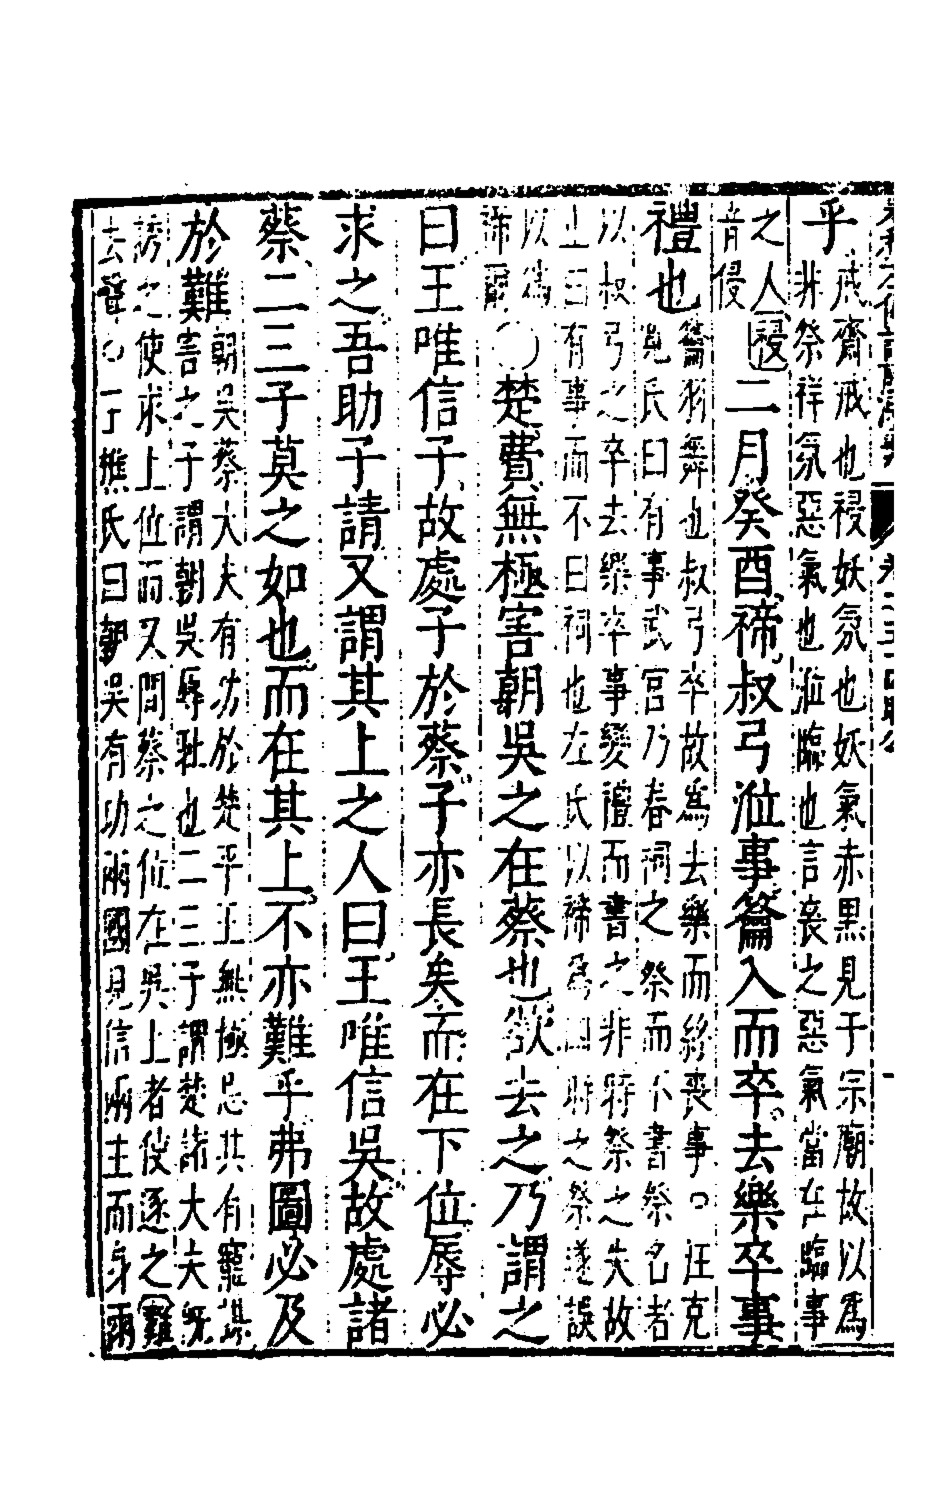 乎
戒齋戒也祲妖氛也妖氣赤黑見于宗廟故以爲
非祭祥氛惡氣也涖臨也言喪之惡氣當在臨事
之人祲
音侵
二月癸酉禘叔弓涖事籥入而卒去樂卒事
禮也
籥羽舞也叔弓卒故爲去樂而終喪事○汪克
寛氏曰有事武宮乃春祠之祭而不書祭名者
以叔弓之卒去樂卒事變禮而書之非時祭之失故
止曰有事而不曰祠也左氏以禘為四時之祭遂誤
以為
禘爾
○楚費無極害朝吳之在蔡也欲去之乃謂之
曰王唯信子故處子於蔡子亦長矣而在下位辱必
求之吾助子請又謂其上之人曰王唯信吳故處諸
蔡二三子莫之如也而在其上不亦難乎弗圖必及
於難
朝吳蔡大夫有功於楚平王無極忌其有寵謀
害之子謂朝吳辱耻也二三子謂楚諸大夫既
誘之使求上位而又間蔡之位在吳上者使逐之難
去聲○丁氏曰朝吳有功兩國見信兩主而身